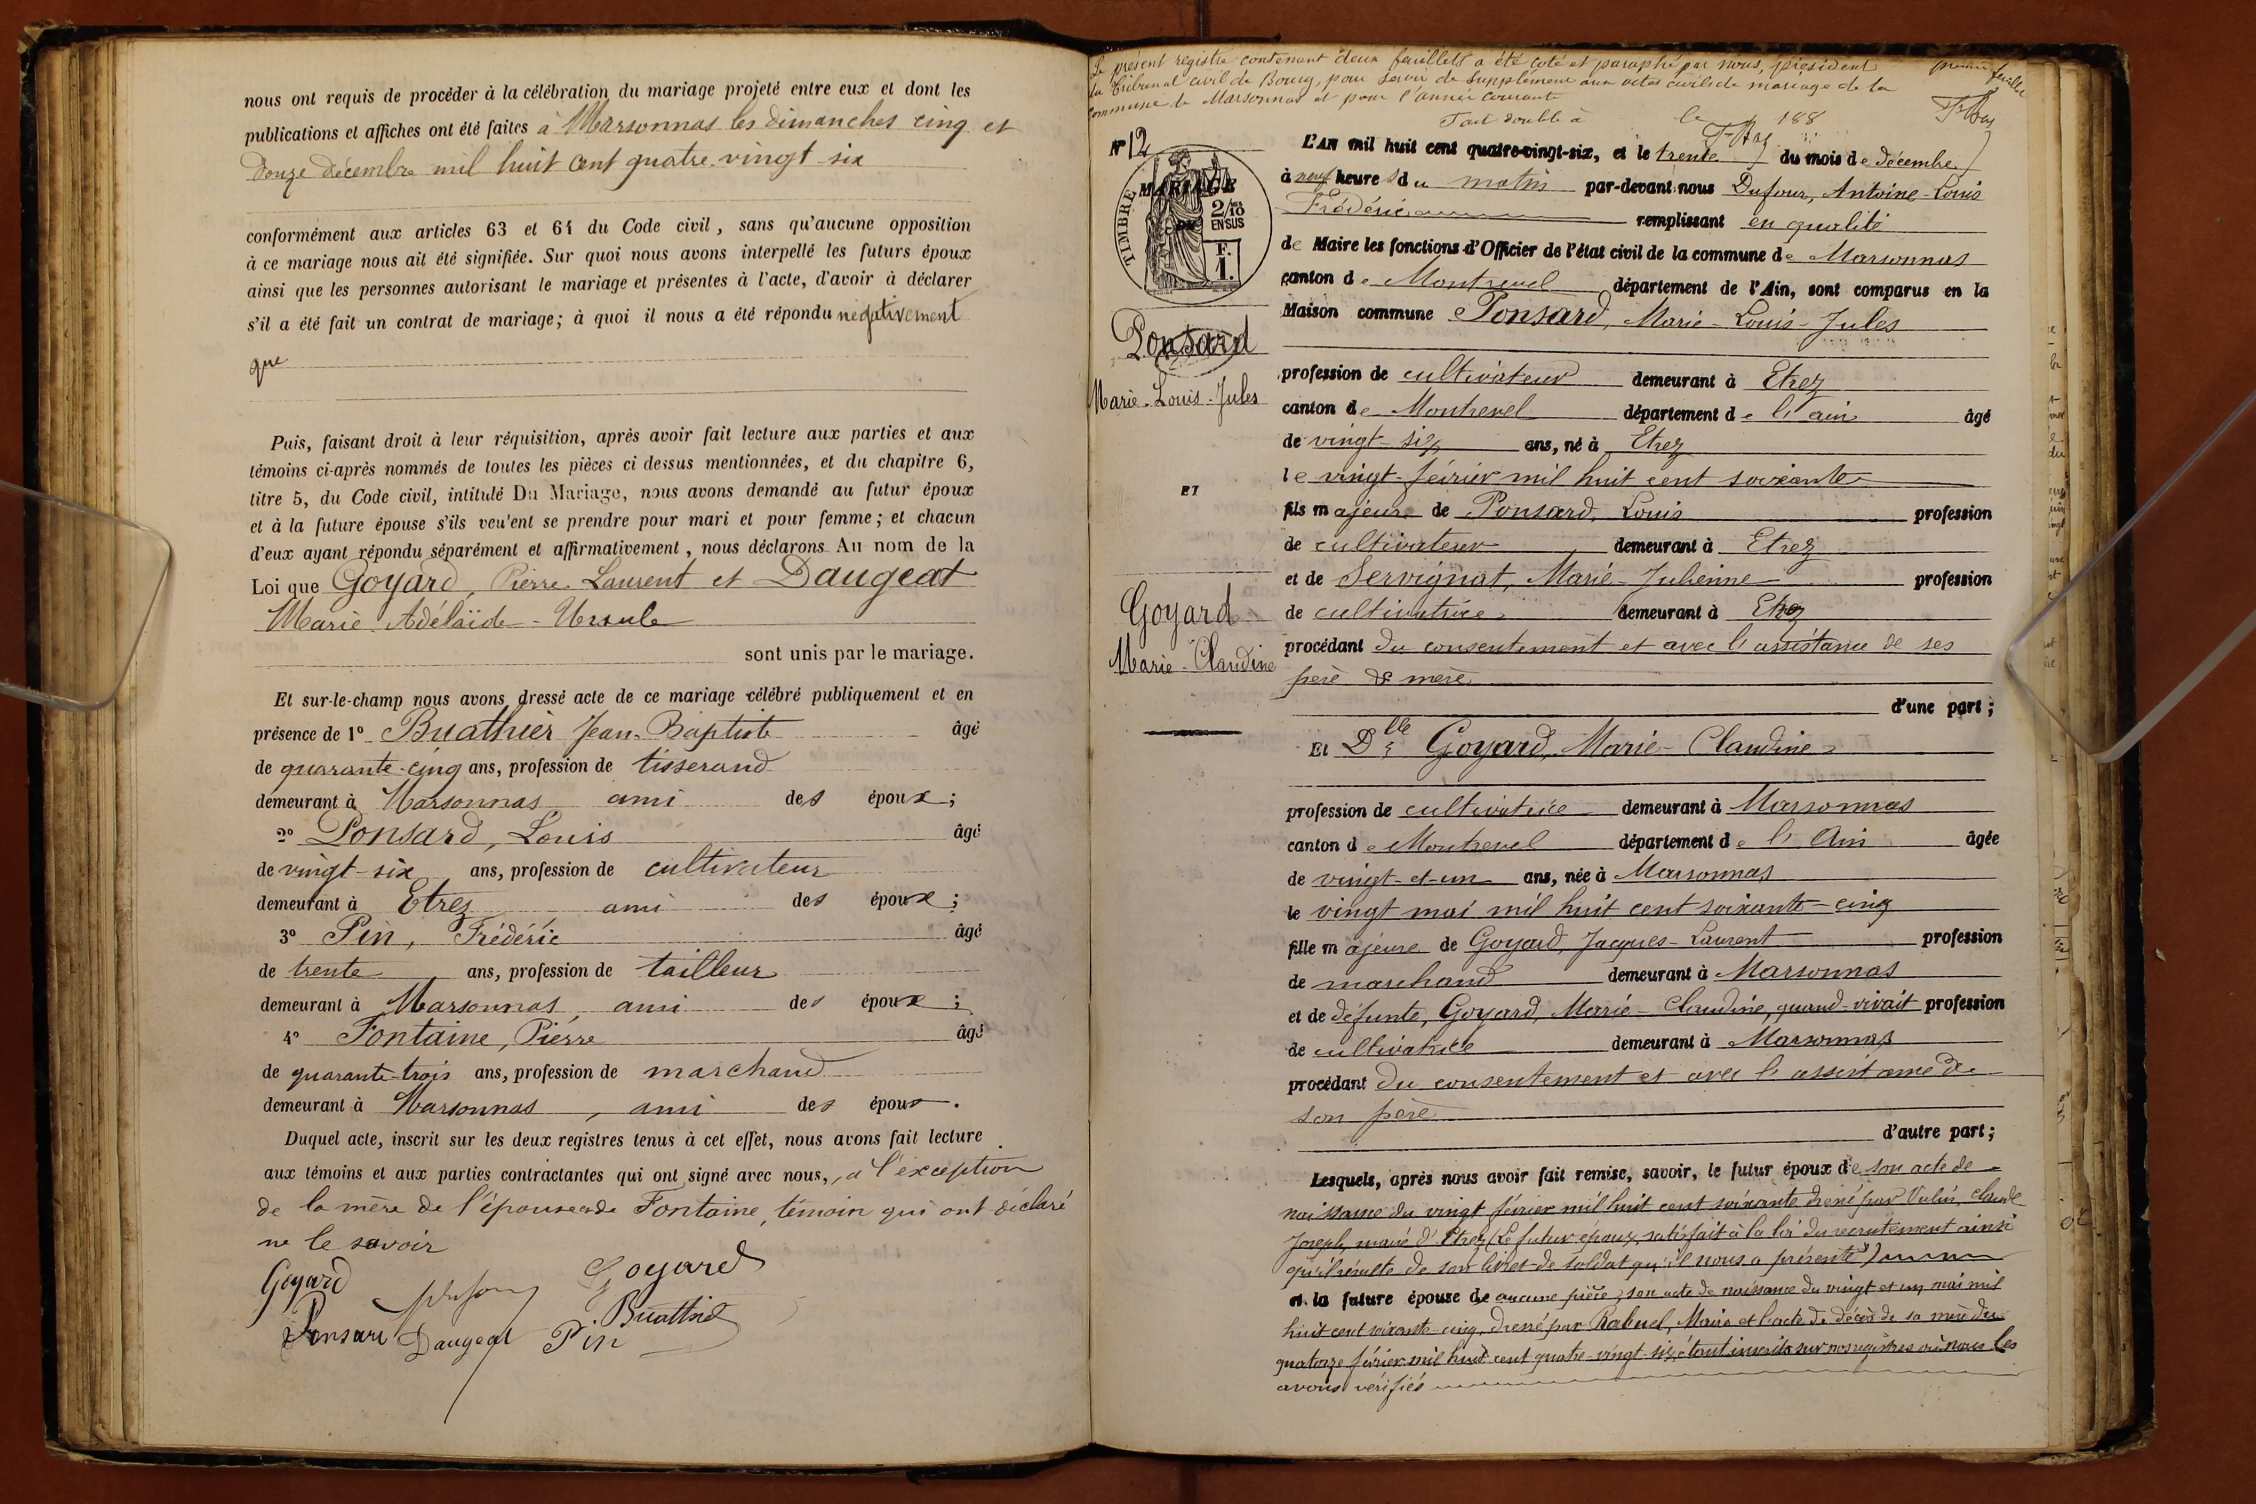 nous ont requis de procéder à la célébration du mariage projeté entre eux et dont les
publications et affiches ont été faites à Marsonnas les dimanches cinq et
douze décembre mil huit cent quatre-vingt-six
conformément aux articles 63 et 64 du Code civil, sans qu'aucune opposition
à ce mariage nous ait été signifiée. Sur quoi nous avons interpellé les futurs époux
ainsi que les personnes autorisant le mariage et présentes à l'acte, d'avoir à déclarer
s'il a été fait un contrat de mariage; à quoi il nous a été répondu négativement
que
Puis, faisant droit à leur réquisition, après avoir fait lecture aux parties et aux
témoins ci-après nommés de toutes les pièces ci dessus mentionnées, et du chapitre 6,
titre 5, du Code civil, intitulé Du Mariage, nous avons demandé au futur époux
et à la future épouse s'ils veu'ent se prendre pour mari et pour femme; et chacun
d'eux ayant répondu séparément et affirmativement, nous déclarons Au nom de la
Loi que Goyard, Pierre-Laurent et Daugeat
Marie-Adélaïde-Ursule
sont unis par le mariage.
Et sur-le-champ nous avons dressé acte de ce mariage célébré publiquement et en
présence de 1° Buathier Jean-Baptiste âgé
de quarante-cinq ans, profession de tisserand
demeurant à Marsonnas ami des époux;
2° Ponsard, Louis âgé
de vingt-six ans, profession de cultivateur
demeurant à Etrez ami des époux;
3° Pin, Frédéric âgé
de trente ans, profession de tailleur
demeurant à Marsonnas, ami des époux;
4° Fontaine, Pierre âgé
de quarante-trois ans, profession de marchand
demeurant à Marsonnas, ami des époux.
Duquel acte, inscrit sur les deux registres tenus à cet effet, nous avons fait lecture
aux témoins et aux parties contractantes qui ont signé avec nous, à l'exception
de la mère de l'épouse et de Fontaine, témoin qui ont déclaré
ne le savoir
Goyard Dufour Goyard
Buathier
Ponsard Daugeat Pin
Le présent registre contenant deux feuillets a été coté et paraphé par nous, président
du Tribunal civil de Bourg, pour servir de supplément aux actes civils de mariage de la
commune de Marsonnas et pour l'année courante
premier feuillet
Fait double à le 188
N° 12
TIMBRE
MARIAGE
2/10
EN SUS
F.
1.
L'AN mil huit cent quatre-vingt-six, et le trente du mois de décembre
à neuf heures du matin par-devant nous Dufour, Antoine-Louis
Frédéric remplissant en qualité
de Maire les fonctions d'Officier de l'état civil de la commune de Marsonnas
canton de Montrevel département de l'Ain, sont comparus en la
Maison commune Ponsard, Marie-Louis-Jules
Ponsard
Marie-Louis-Jules
profession de cultivateur demeurant à Etrez
canton de Montrevel département de l'ain âgé
de vingt-six ans, né à Etrez
le vingt février mil huit cent soixante
ET
fils majeur de Ponsard, Louis profession
de cultivateur demeurant à Etrez
et de Servignat, Marie-Julienne profession
de cultivatrice demeurant à Etrez
Goyard
Marie-Claudine
procédant du consentement et avec l'assistance de ses
père & mère
d'une part;
Et Dlle Goyard, Marie-Claudine
profession de cultivatrice demeurant à Marsonnas
canton de Montrevel département de l'Ain âgée
de vingt-et-un ans, née à Marsonnas
le vingt mai mil huit cent soixante-cinq
fille majeure de Goyard, Jacques-Laurent profession
de marchand demeurant à Marsonnas
et de défunte, Goyard, Marie-Claudine, quand-vivait profession
de cultivatrice demeurant à Marsonnas
procédant du consentement et avec l'assistance de
son père
d'autre part;
Lesquels, après nous avoir fait remise, savoir, le futur époux de son acte de
naissance du vingt février mil huit cent soixante dressé par Vulin, Claude
Joseph, maire d'Etrez (Le futur époux, satisfait à la loi du recrutement ainsi
qu'il résulte de son livret de soldat qu'il nous a présenté)
et la future épouse de aucune pièce, son acte de naissance du vingt et un mai mil
huit cent soixante cinq, dressé par Rabuel, Maire et l'acte de décès de sa mère du
quatorze février mil huit cent quatre-vingt-six étant inscrits sur nos registres où nous les
avons vérifiés